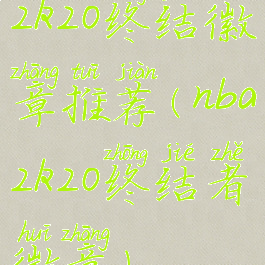 2k20终结徽
zhāng tuī jiàn
章推荐(nba
zhōng jié zhě
2k20终结者
huī zhāng
徽章)